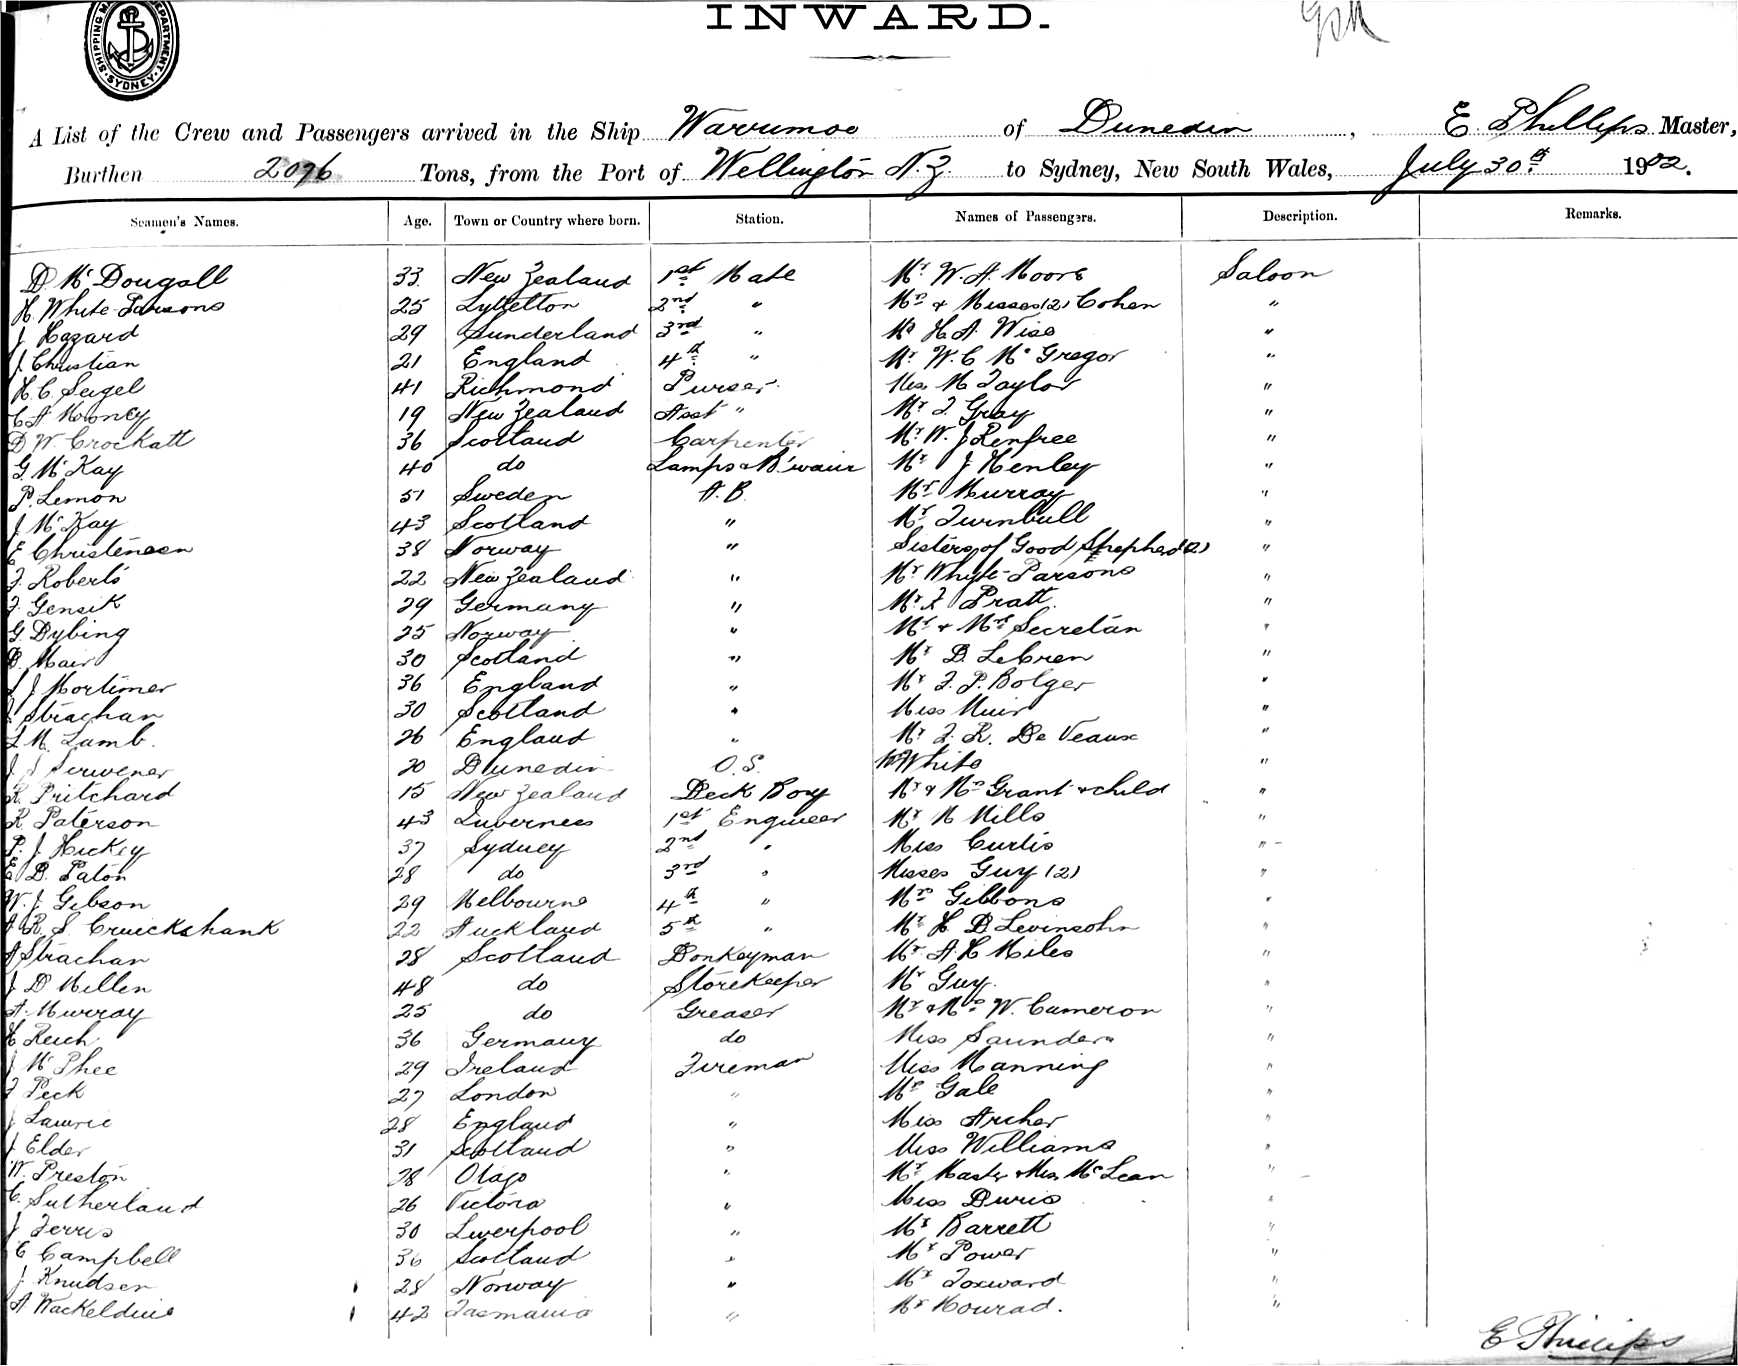 SHIPPING MA DEPARTMENT SYDNEY
INWARD.
A List of the Crew and Passengers arrived in the Ship Warrimoo of Dunedin, E. Phillips Master,
Burthen 2076 Tons, from the Port of Wellington N.Z. to Sydney, New South Wales, July 30th 1902.
Seamen's Names. Age. Town or Country where born. Station. Names of Passengers. Description. Remarks.
D Mc Dougall 33 New Zealand 1st Mate Mr W. A. Moore Saloon
H. White-Parsons 25 Lyttelton 2nd " Mrs & Misses (2) Cohen "
J Hazard 29 Sunderland 3rd " Mr H A Wise "
J Christian 21 England 4th " Mr W. C Mc Gregor "
H. C. Seigel 41 Richmond Purser Miss M Taylor "
C A Mooney 19 New Zealand Asst " Mr J. Gray "
D W. Crockatt 36 Scotland Carpenter Mr W. J Renfree "
G. Mc Kay 40 do Lamps & Mr J Henley "
P. Lemon 51 Sweden A. B. Mr Murray "
J Mc Kay 43 Scotland " Mr Turnbull "
E Christensen 38 Norway " Sisters of Good Shepherd (2) "
J. Roberts 22 New Zealand " Mr Whyte-Parsons "
J. Gensik 29 Germany " Mr F Pratt. "
G. Dybing 25 Norway " Mr & Mrs Secretan "
Mair 30 Scotland " Mr D. LeCren "
J Mortimer 36 England " Mr J. P. Bolger "
Strachan 30 Scotland " Miss Muir "
M. Lamb. 26 England " Mr J. R. De Veaux "
J J Scrivener 20 Dunedin O. S. White "
R. Pritchard 15 New Zealand Deck Boy Mr & Mrs Grant & child "
R Paterson 43 Inverness 1st Engineer Mr M Mills "
P. J. Hickey 37 Sydney 2nd " Miss Curtis "
E B. Paton 28 do 3rd " Misses Guy (2) "
W. J. Gibson 29 Melbourne 4th " Mrs Gibbons "
A R. S. Cruickshank 22 Auckland 5th " Mr H D Levinsohn "
A Strachan 28 Scotland Donkeyman Mr A. H Miles "
J D Millen 48 do Storekeeper Mr Guy. "
A. Murray 25 do Greaser Mr & Mrs W. Cameron "
H Reich 36 Germany do Miss Saunders "
J Mc Phee 29 Ireland Fireman Miss Manning "
J Peck 27 London " Mr Gale "
J Lawrie 28 England " Miss Archer "
J Elder 31 Scotland " Miss Williams "
W. Preston 28 Otago " Mr Master & Miss McLean "
C. Sutherland 26 Victoria " Miss Duris "
J Ferris 30 Liverpool " Mr Barrett "
C Campbell 36 Scotland " Mr Power "
J Knudsen 28 Norway " Mr Foxward "
A Wackeldine 42 Tasmania " Mr Conrad. "
E Phillips